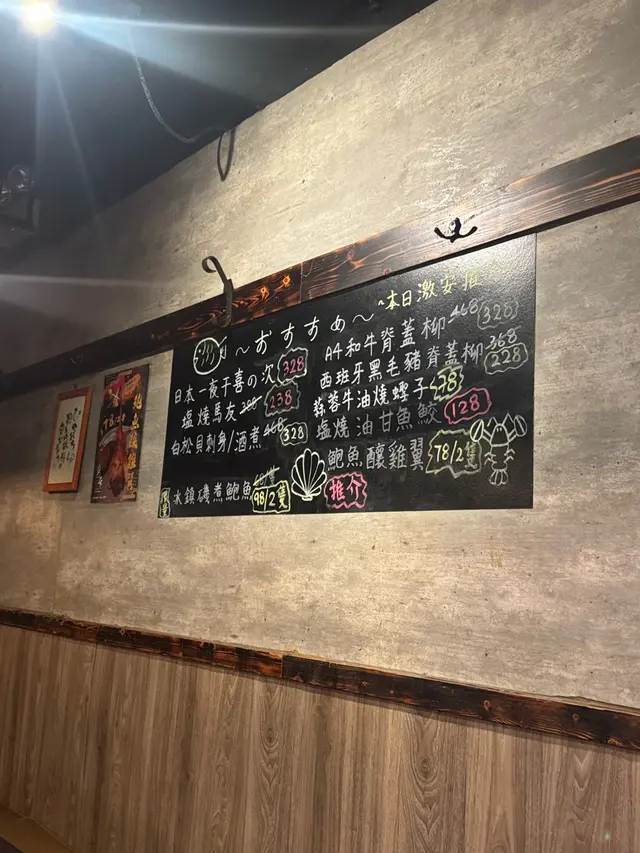 ~おすすめ~
~本日激安推
日本一夜干喜の次 328
塩燒馬友 280 238
白松貝刺身/酒煮 468 328
限量 冰鎮磯煮鮑魚 98/2隻
推介
A4和牛脊蓋柳 468 328
西班牙黑毛豬脊蓋柳 368 228
蒜蓉牛油燒蟶子 78
塩燒油甘魚鮫 128
鮑魚釀雞翼 78/2隻